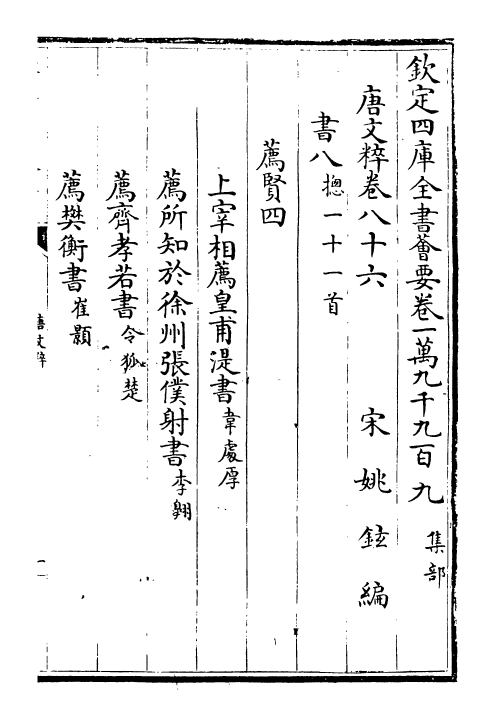 欽定四庫全書薈要卷一萬九千九百九 集部
唐文粹卷八十六 宋姚鉉編
書八摠一十一首
薦賢四
上宰相薦皇甫湜書韋處厚
薦所知於徐州張僕射書李翶
薦齊孝若書令狐楚
薦樊衡書崔顥
唐文粹
一